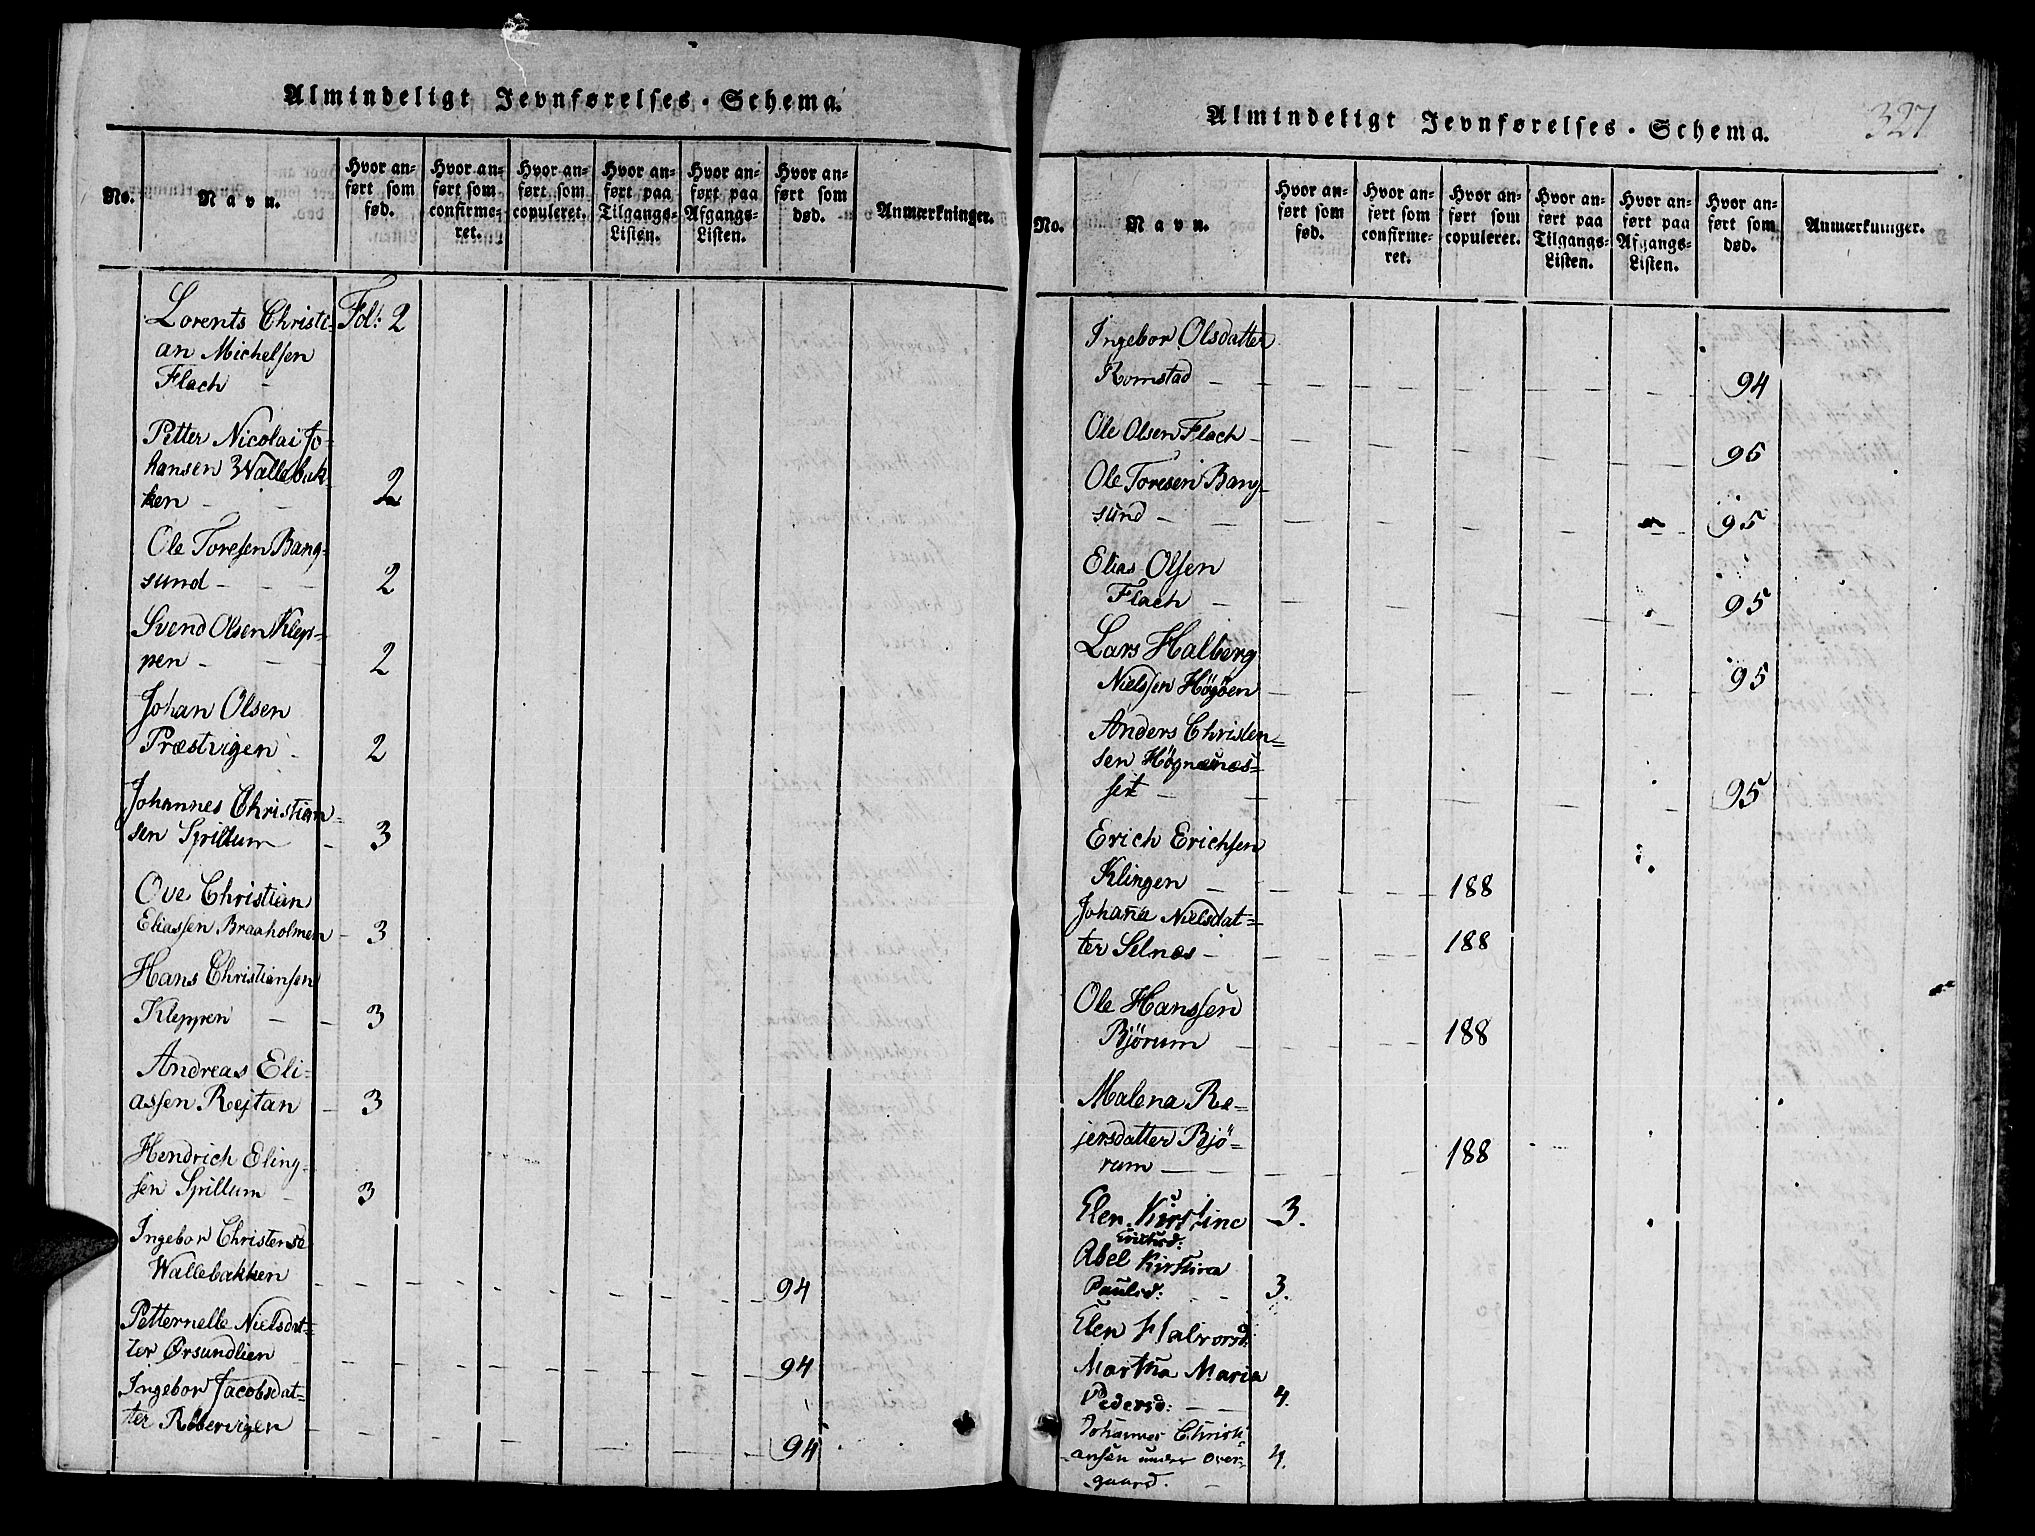 Almindeligt Jevnførelses-Schema.
No.
Navn.
Hvor an-
ført som
fød.
Hvor an-
ført som
confirme-
ret.
Hvor an-
ført som
copuleret.
Hvor an-
ført paa
Tilgangs-
Listen.
Hvor an-
ført paa
Afgangs-
Listen.
Hvor an-
ført som
død.
Anmærkninger.
Lorents Christi- Fol: 2
an Michelsen
Flach -
Petter Nicolai Jo-
hansen Wallebak-
ken - - 2
Ole Toresen Bang-
sund - - 2
Svend Olsen Klep-
pen - - - 2
Johan Olsen
Præstvigen - 2
Johannes Christian-
sen Spillum - 3
Ove Christian
Eliassen Braaholmen - 3
Hans Christiansen
Kleppen - - 3
Andreas Eli-
assen Rejtan - 3
Hendrich Eling-
sen Spillum - 3
Ingebor Christensd
Wallebakken - - - - - - 94
Petternelle Nielsdat-
ter Ørsundlien - - - - - - 94
Ingebor Jacobsdat-
ter - - - - - - 94
Almindeligt Jevnførelses-Schema.
327
No.
Navn.
Hvor an-
ført som
fød.
Hvor an-
ført som
confirme-
ret.
Hvor an-
ført som
copuleret.
Hvor an-
ført paa
Tilgangs-
Listen.
Hvor an-
ført paa
Afgangs-
Listen.
Hvor an-
ført som
død.
Anmærkninger.
Ingebor Olsdatter
Romstad - - - - - - 94
Ole Olsen Flach - - - - - - 95
Ole Toresen Bang-
sund - - - - - - 95
Elias Olsen
Flach - - - - - - 95
Lars Halberg
Nielssen Högöen - - - - - - 95
Anders Christen-
sen Högnesnes-
set - - - - - - 95
Erich Erichsen
Klingen - - - - 188
Johana Nielsdat-
ter Selnæs - - - - 188
Ole Hanssen
Bjørum - - - 188
Malena Re-
jersdatter Bjö-
rum - - - - 188
Elen Kirstine 3.
Abel Kirstina
Paulsd: - - 3.
Elen Halvorsd:
Martha Maria
Pedersd: - - 4.
Johannes Christi
ansen under Over- 4.
gaard. -